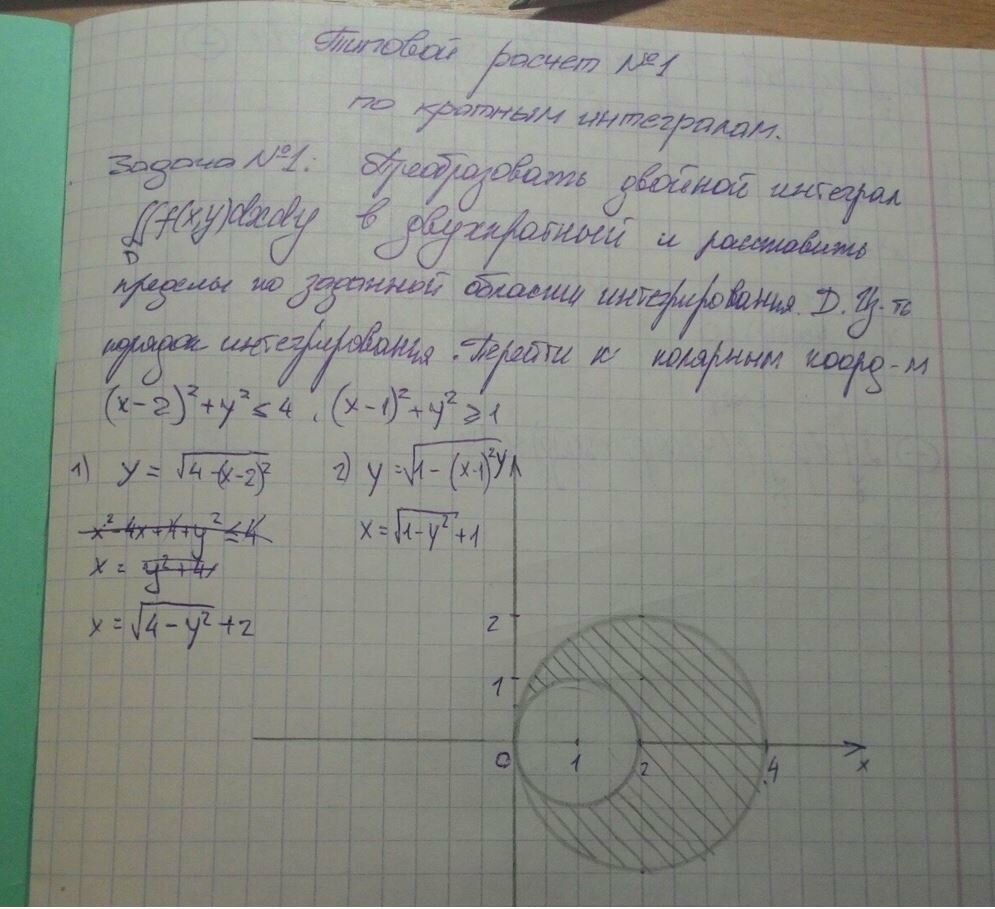 Типовой расчет №1
по кратным интегралам.
Задача №1: Преобразовать двойной интеграл
∬f(x,y)dxdy в двухкратный и расставить
D
пределы по заданной области интегрирования. D. Из-ть
порядок интегрирования. Перейти к полярным коорд-м
(x-2)²+y²≤4, (x-1)²+y²≥1
1) y = √4-(x-2)² 2) y=√1-(x-1)² y
x²-4x+4+y²≤4 x=√1-y²+1
x = y²+4
x=√4-y²+2
2
1
0 1 2 4 x